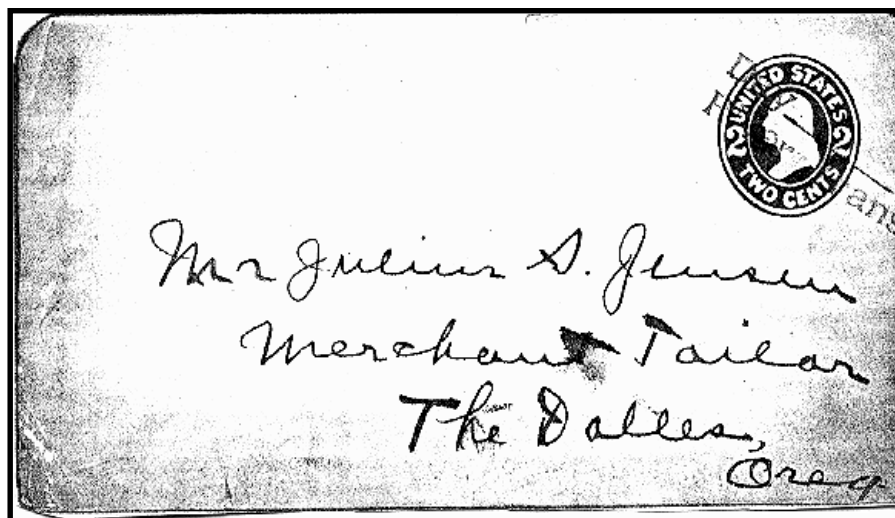 UNITED STATES
2 2
TWO CENTS
Mr Julius S. Jensen
Merchant Tailor
The Dalles,
Oreg